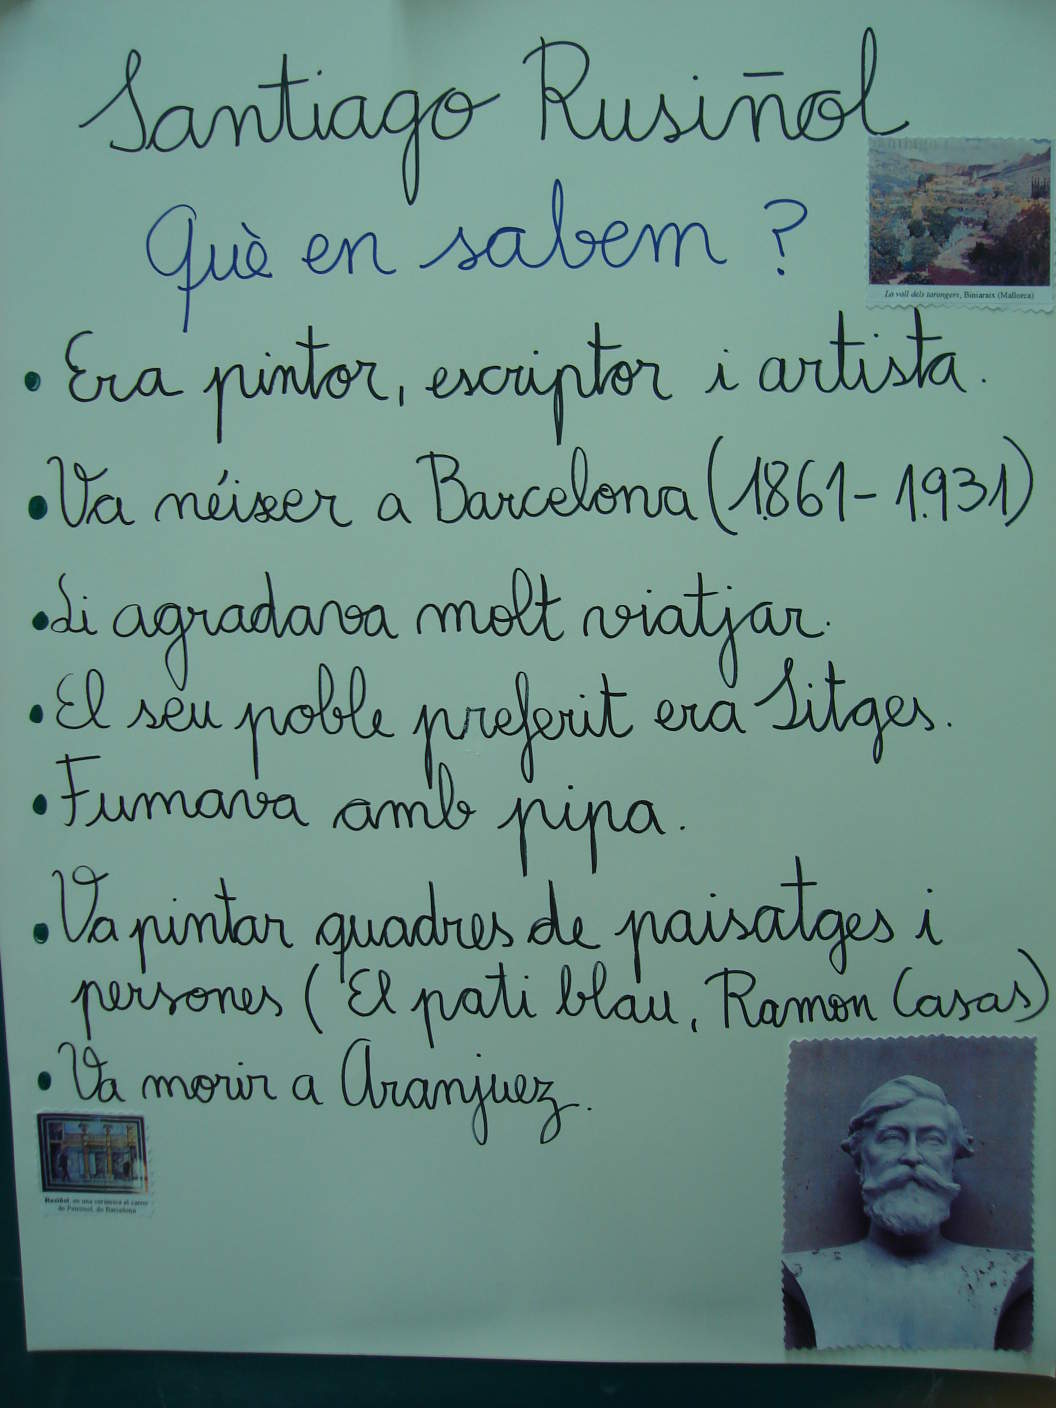 Santiago Rusiñol
Què en sabem?
La vall dels tarongers, Biniaraix (Mallorca)
• Era pintor, escriptor i artista.
• Va néixer a Barcelona (1.861-1.931)
• Li agradava molt viatjar.
• El seu poble preferit era Sitges.
• Fumava amb pipa.
• Va pintar quadres de paisatges i
persones (El pati blau, Ramon Casas)
• Va morir a Aranjuez.
Rusiñol, en una ceràmica al carrer
de Petritxol, de Barcelona